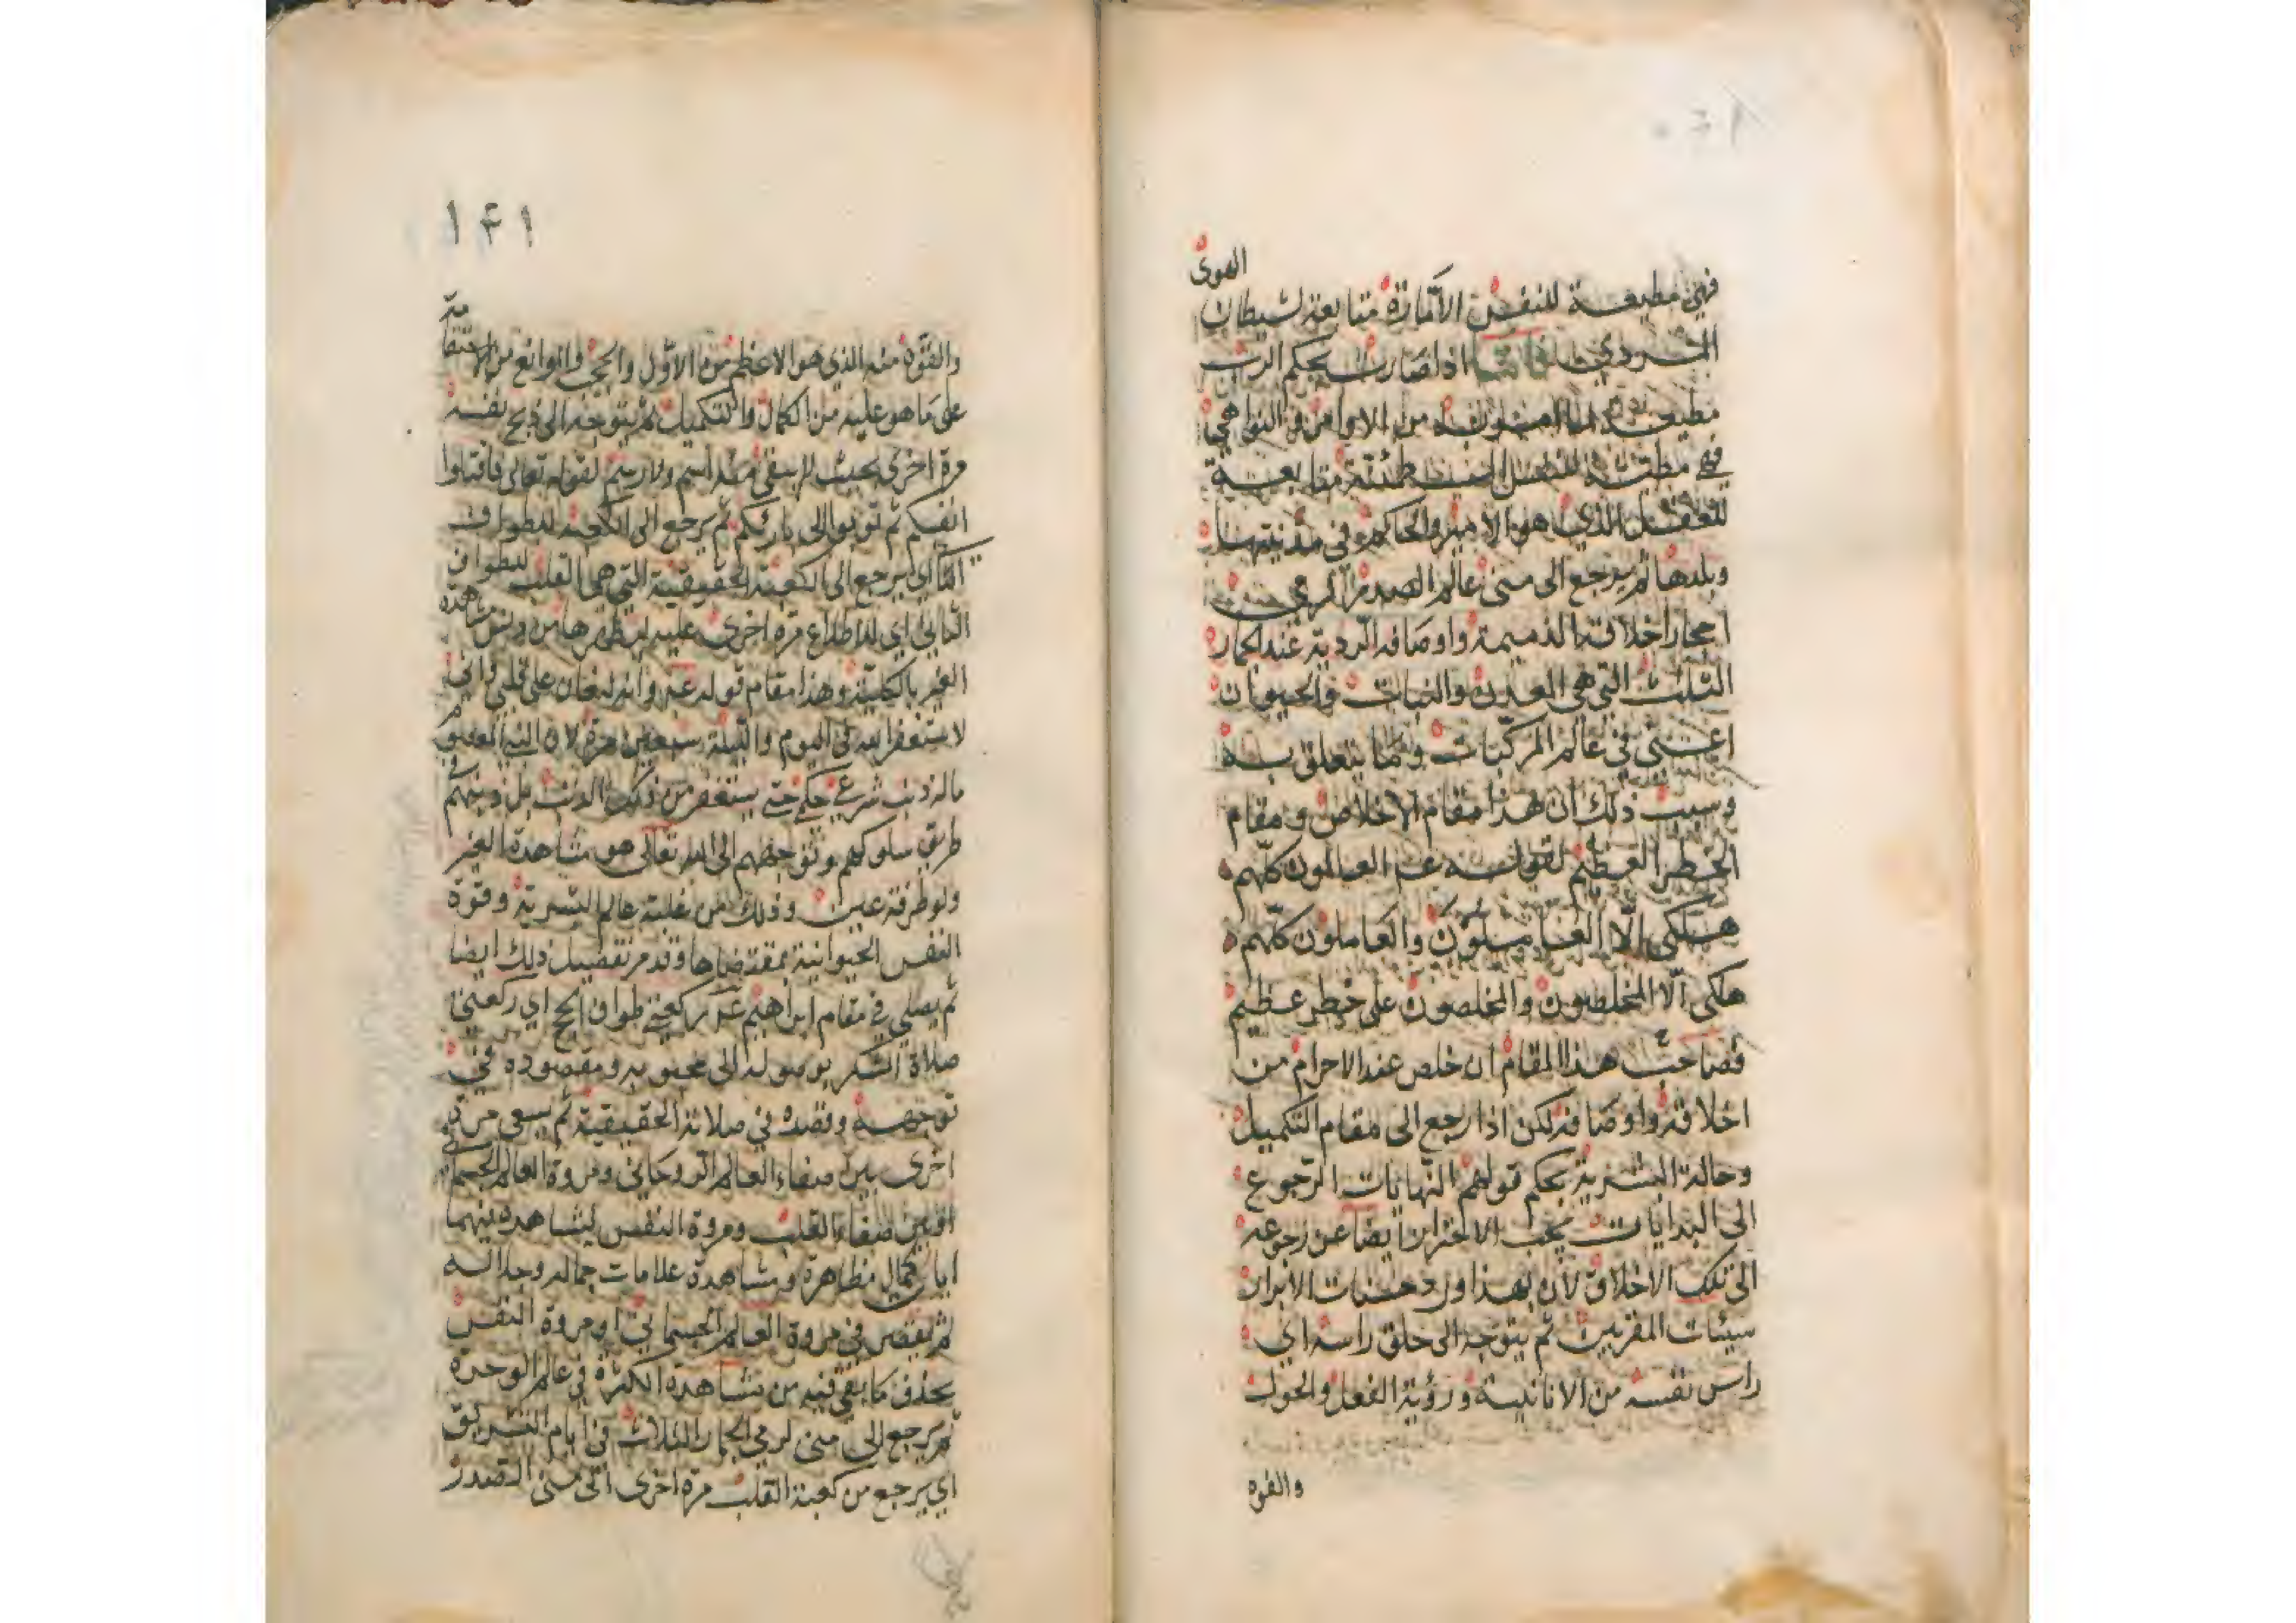 الهوى
فهي مطيعة للنفس الامارة متابعة لشيطان
المردي اذا صارت بحكم الرب
مطيعة من الاوامر والنواهي
فهي مطيعة للنفس المطمئنة متابعة
للعقل الذي هو الامير والحاكم في مدينتها
وبلدها ثم يرجع الى منى عالم الصدر لرمي
احجار اخلاقه الذميمة واوصافه الردية عند الجمار
الثلث التي هي المعدن والنبات والحيوان
اعنى في عالم المركبات وما يتعلق به
وسبب ذلك ان هذا مقام الاخلاص ومقام
الخطر العظيم لقوله عم العالمون كلهم
هلكى الّا العاملون والعاملون كلهم
هلكى الّا المخلصون والمخلصون على خطر عظيم
فصاحب هذا المقام ان خلص عند الاحرام من
اخلاقه واوصافه لكن اذا رجع الى مقام التكميل
وحالة البشرية بحكم قولهم النهايات الرجوع
الى البدايات يجب الاحتراز ايضا عن رجوعه
الى تلك الاخلاق لان بهذا ورد حسنات الابرار
سيئات المقربين ثم يتوجه الى حلق راسه اي
راس نفسه من الانانية ورؤية الفعل والحول
والقوه
١۴١
والقوة منه الذي هو الاعظم من الاول والحجب والموانع من
على ما هو عليه من الكمال والتكميل ثم يتوجه الى ذبح نفسه
مرة اخرى بحيث لا يبقى منه اسم ولا رسم لقوله تعالى فاقتلوا
انفسكم ثم توبوا الى بارئكم ثم يرجع الى الكعبة لطواف
اي يرجع الى الكعبة الحقيقية التي هي القلب للطواف
الثاني اي للاطلاع مرة اخرى عليه ليطهرها من دنس مشاهدة
الغير بالكلية وهذا مقام قوله عم وانه ليغان على قلبي واني
لاستغفر الله في اليوم والليلة سبعين مرة لان النبي المعصوم
ماله ذنب شرعي حكمي حتى يستغفر من ذلك الذنب بل ذنبهم في
طريق سلوكهم وتوجههم الى الله تعالى هو مشاهدة الغير
ولو طرفة عين وذلك من غلبة عالم البشرية وقوة
النفس الحيوانية بمقتضاها وقد مر تفصيل ذلك ايضا
ثم يصلي في مقام ابراهيم عم ركعتي طواف الحج اي ركعتي
صلاة الشكر بوصوله الى محبوبه ومقصوده في
توجهه وقصده في صلاته الحقيقية ثم يسعى مرة
اخرى بين صفاء العالم الروحاني ومروة العالم الجسماني
او بين صفاء القلب ومروة النفس ليشاهد بينهما
ايات كمال مظاهره ومشاهدة علامات جماله وجلاله
ثم يقصر في مروة العالم الجسماني او مروة النفس
بحذف ما بقي فيه من مشاهدة الكثرة في عالم الوحدة
ثم يرجع الى منى لرمي الجمار الثلاث في ايام التشريق
اي يرجع من كعبة القلب مرة اخرى الى منى الصدر